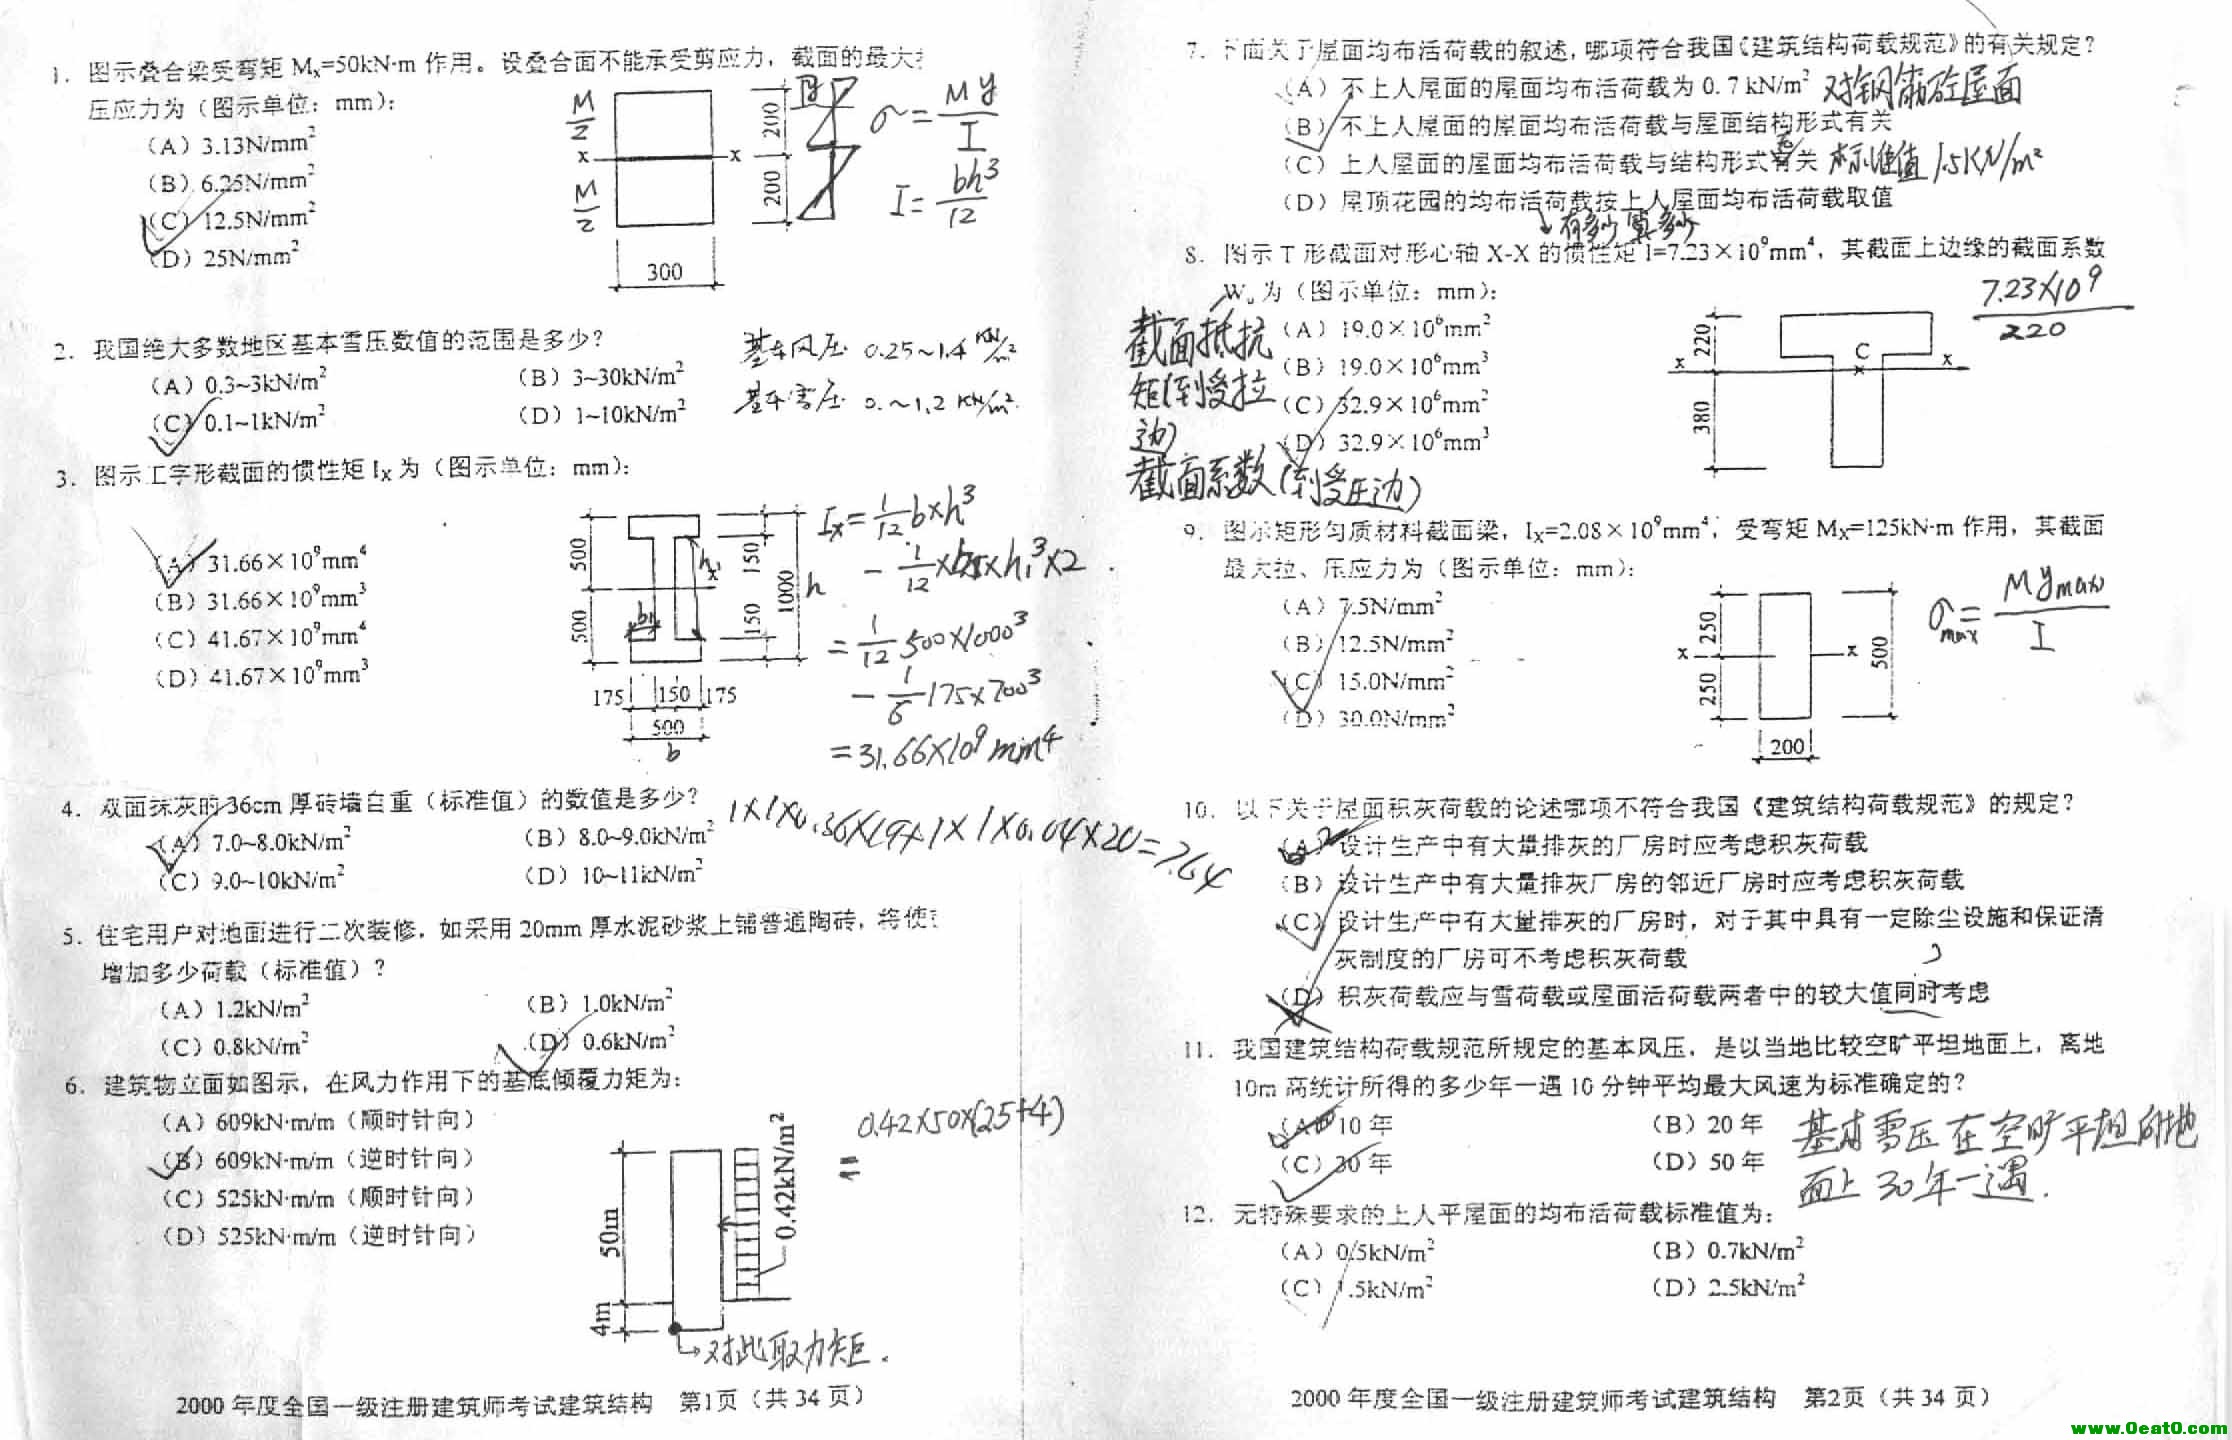 1. 图示叠合梁受弯矩 Mx=50kN·m 作用。设叠合面不能承受剪应力，截面的最大
压应力为（图示单位：mm）：
（A）3.13N/mm²
（B）6.25N/mm²
（C）12.5N/mm²
（D）25N/mm²
M/2
M/2
x
x
200
200
300
σ=My/I
I=bh³/12
2. 我国绝大多数地区基本雪压数值的范围是多少？
（A）0.3~3kN/m²
（B）3~30kN/m²
（C）0.1~1kN/m²
（D）1~10kN/m²
基本风压 0.25~1.4 KN/m²
基本雪压 0.~1.2 KN/m².
3. 图示工字形截面的惯性矩 Ix 为（图示单位：mm）：
（A）31.66×10⁹mm⁴
（B）31.66×10⁹mm³
（C）41.67×10⁹mm⁴
（D）41.67×10⁹mm³
500
500
150
150
1000
h
b₁
175
150
175
500
b
Ix=1/12 b×h³
=1/12 500×1000³
- 1/6 175×700³
=31.66×10⁹mm⁴
4. 双面抹灰的 36cm 厚砖墙自重（标准值）的数值是多少？
（A）7.0~8.0kN/m²
（B）8.0~9.0kN/m²
（C）9.0~10kN/m²
（D）10~11kN/m²
1×1×0.36×19+1×1×0.04×20=7.64
5. 住宅用户对地面进行二次装修，如采用 20mm 厚水泥砂浆上铺普通陶砖，将使
增加多少荷载（标准值）？
（A）1.2kN/m²
（B）1.0kN/m²
（C）0.8kN/m²
（D）0.6kN/m²
6. 建筑物立面如图示，在风力作用下的基底倾覆力矩为：
（A）609kN·m/m（顺时针向）
（B）609kN·m/m（逆时针向）
（C）525kN·m/m（顺时针向）
（D）525kN·m/m（逆时针向）
50m
4m
0.42kN/m²
0.42×50×(25+4)
=
对此取力矩.
2000 年度全国一级注册建筑师考试建筑结构 第1页（共 34 页）
7. 下面关于屋面均布活荷载的叙述，哪项符合我国《建筑结构荷载规范》的有关规定？
（A）不上人屋面的屋面均布活荷载为 0.7 kN/m² 对钢筋砼屋面
（B）不上人屋面的屋面均布活荷载与屋面结构形式有关
（C）上人屋面的屋面均布活荷载与结构形式有关 标准值 1.5KN/m²
（D）屋顶花园的均布活荷载按上人屋面均布活荷载取值
有多少算多少
8. 图示 T 形截面对形心轴 X-X 的惯性矩 I=7.23×10⁹mm⁴，其截面上边缘的截面系数
Wu 为（图示单位：mm）：
（A）19.0×10⁶mm²
（B）19.0×10⁶mm³
（C）32.9×10⁶mm²
（D）32.9×10⁶mm³
截面抵抗
矩(到受拉
边)
截面系数(到受压边)
220
380
x
C
x
7.23×10⁹/220
9. 图示矩形匀质材料截面梁，Ix=2.08×10⁹mm⁴，受弯矩 Mx=125kN·m 作用，其截面
最大拉、压应力为（图示单位：mm）：
（A）7.5N/mm²
（B）12.5N/mm²
（C）15.0N/mm²
（D）30.0N/mm²
250
250
x
x
500
200
σmax=Mymax/I
10. 以下关于屋面积灰荷载的论述哪项不符合我国《建筑结构荷载规范》的规定？
（A）设计生产中有大量排灰的厂房时应考虑积灰荷载
（B）设计生产中有大量排灰厂房的邻近厂房时应考虑积灰荷载
（C）设计生产中有大量排灰的厂房时，对于其中具有一定除尘设施和保证清
灰制度的厂房可不考虑积灰荷载
（D）积灰荷载应与雪荷载或屋面活荷载两者中的较大值同时考虑
11. 我国建筑结构荷载规范所规定的基本风压，是以当地比较空旷平坦地面上，离地
10m 高统计所得的多少年一遇 10 分钟平均最大风速为标准确定的？
（A）10 年
（B）20 年
（C）30 年
（D）50 年
基本雪压在空旷平坦的地
面上 30年一遇.
12. 无特殊要求的上人平屋面的均布活荷载标准值为：
（A）0.5kN/m²
（B）0.7kN/m²
（C）1.5kN/m²
（D）2.5kN/m²
2000 年度全国一级注册建筑师考试建筑结构 第2页（共 34 页）
www.0eat0.com